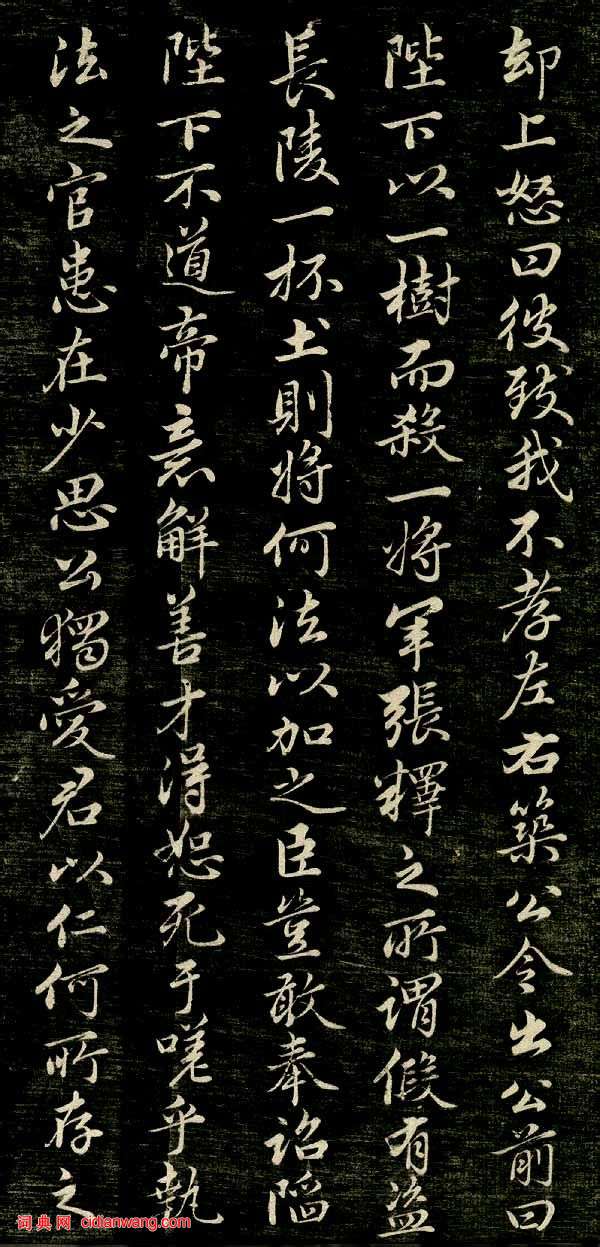 却上怒曰彼致我不孝左右築公令出公前曰
陛下以一樹而殺一將軍張釋之所謂假有盜
長陵一杯土則將何法以加之臣豈敢奉詔陷
陛下不道帝意解善才得恕死于嗟乎執
法之官患在少思公獨愛君以仁何所存之
词典网 cidianwang.com